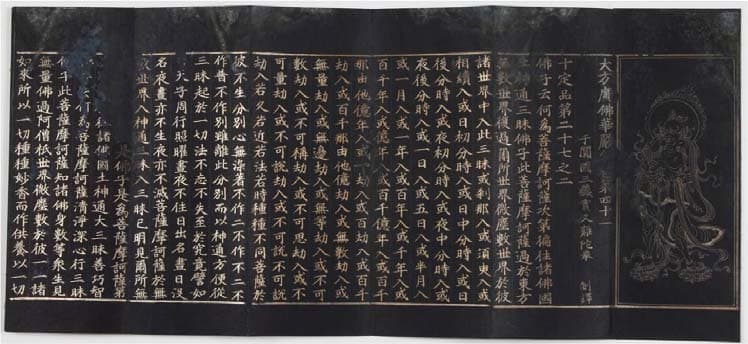 大方廣佛華嚴經卷第四十一
于闐國三藏實叉難陀奉 制譯
十定品第二十七之二
佛子云何為菩薩摩訶薩次第徧往諸佛國
土神通三昧佛子此菩薩摩訶薩過於東方
無數世界復過爾所世界微塵數世界於彼
諸世界中入此三昧或剎那入或須臾入或
相續入或日初分時入或日中分時入或日
後分時入或夜初分時入或夜中分時入或
夜後分時入或一日入或五日入或半月入
或一月入或一年入或百年入或千年入或
百千年入或億年入或百千億年入或百千
那由他億年入或一劫入或百劫入或百千
劫入或百千那由他億劫入或無數劫入或
無量劫入或無邊劫入或無等劫入或不可
數劫入或不可稱劫入或不可思劫入或不
可量劫入或不可說劫入或不可說不可說
劫入若久若近若法若時種種不同菩薩於
彼不生分別心無染著不作二不作不二不
作普不作別雖離此分別而以神通方便從
三昧起於一切法不忘不失至於究竟譬如
天子周行照曜晝夜不住日出名晝日沒
名夜晝亦不生夜亦不滅菩薩摩訶薩於無
世界入神通三昧入三昧已明見爾所無
佛子是為菩薩摩訶薩第
往諸佛國土神通大三昧善巧智
云何為菩薩摩訶薩清淨深心行三昧
佛子此菩薩摩訶薩知諸佛身數等眾生見
無量佛過阿僧祇世界微塵數於彼一一諸
如來所以一切種種妙香而作供養以一切